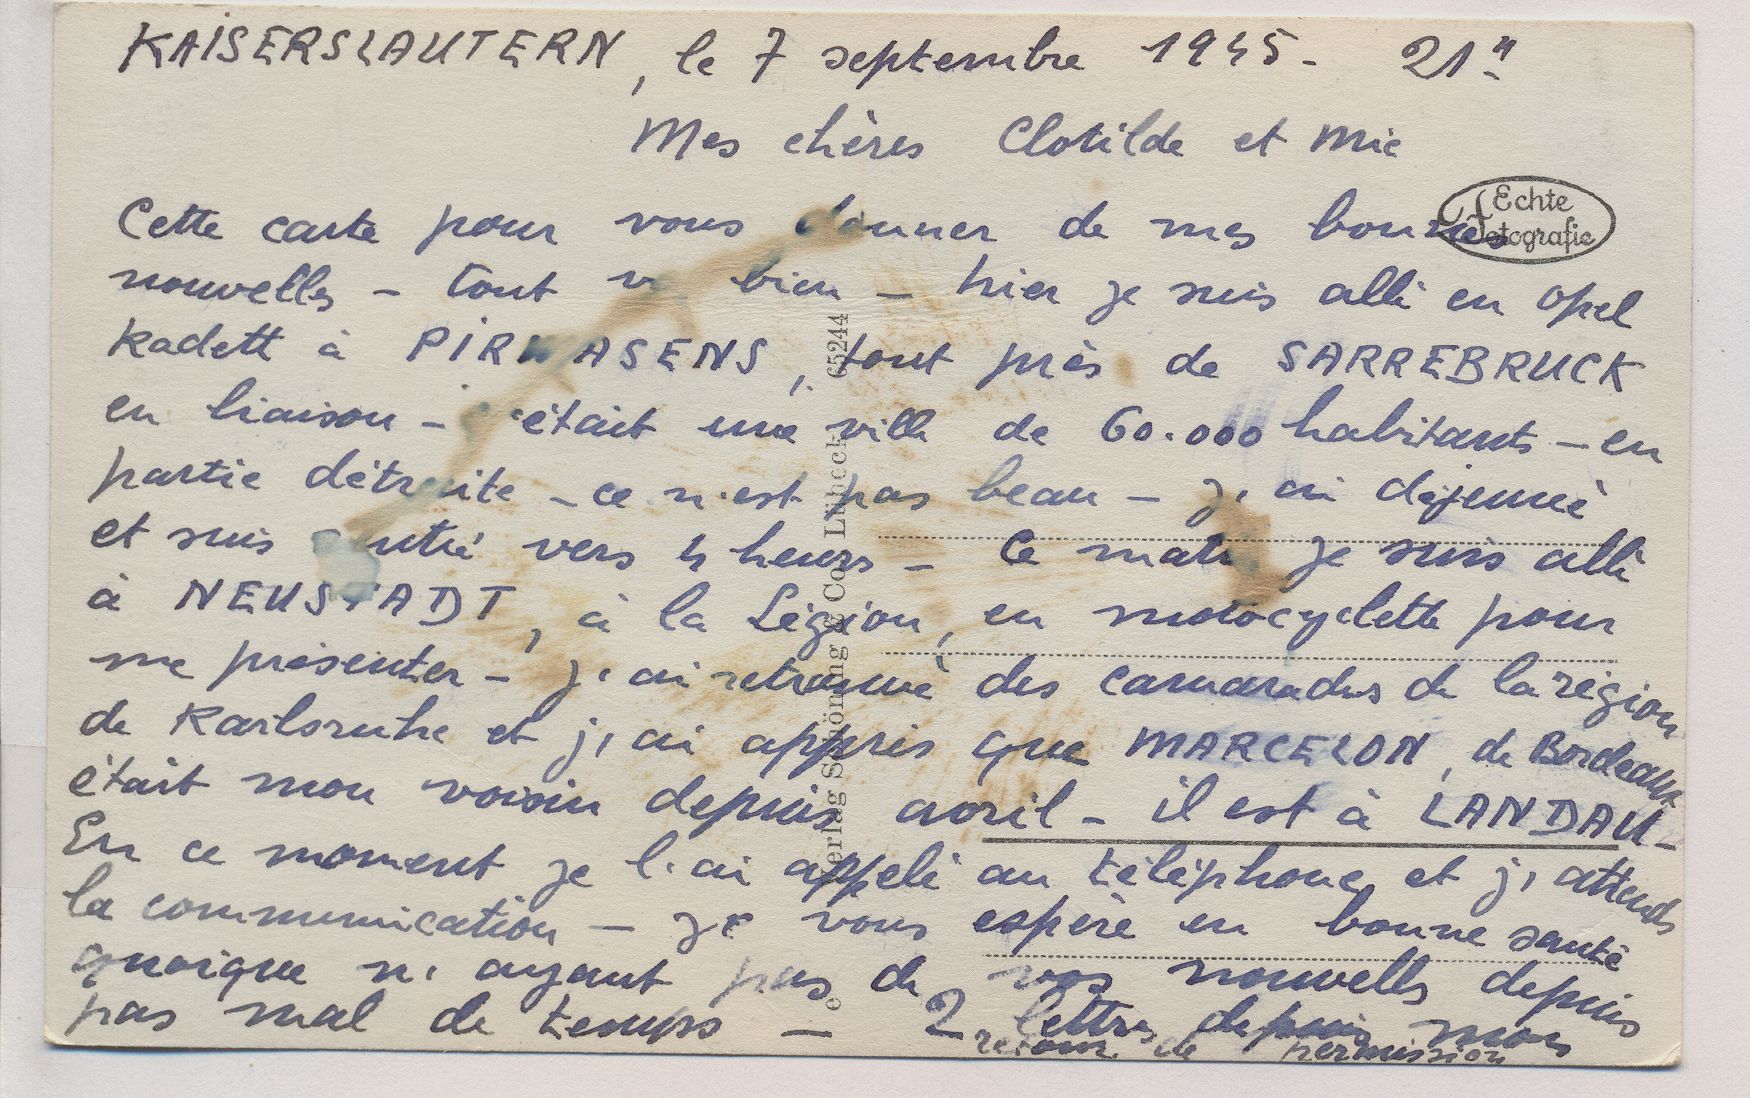 KAISERSLAUTERN, le 7 septembre 1945 - 21 "
Mes chères Clotilde et Mie
Echte
Fotografie
Cette carte pour vous donner de mes bonnes
nouvelles - tout va bien - hier je suis allé en Opel
Kadett à PIRMASENS, tout près de SARREBRUCK
en liaison - c'était une ville de 60.000 habitants - en
partie détruite - ce n'est pas beau - j'ai déjeuné
et suis rentré vers 4 heures - Ce matin je suis allé
à NEUSTADT, à la Légion, en motocyclette pour
me présenter - j'ai retrouvé des camarades de la région
de Karlsruhe et j'ai appris que MARCELON, de Bordeaux
était mon voisin depuis avril - il est à LANDAU -
En ce moment je l'ai appelé au téléphone et j'attends
la communication - je vous espère en bonne santé
quoique n'ayant pas de vos nouvelles depuis
pas mal de temps - 2 lettres depuis mon
retour de permission
Verlag Schöning & Co Lübeck 65244